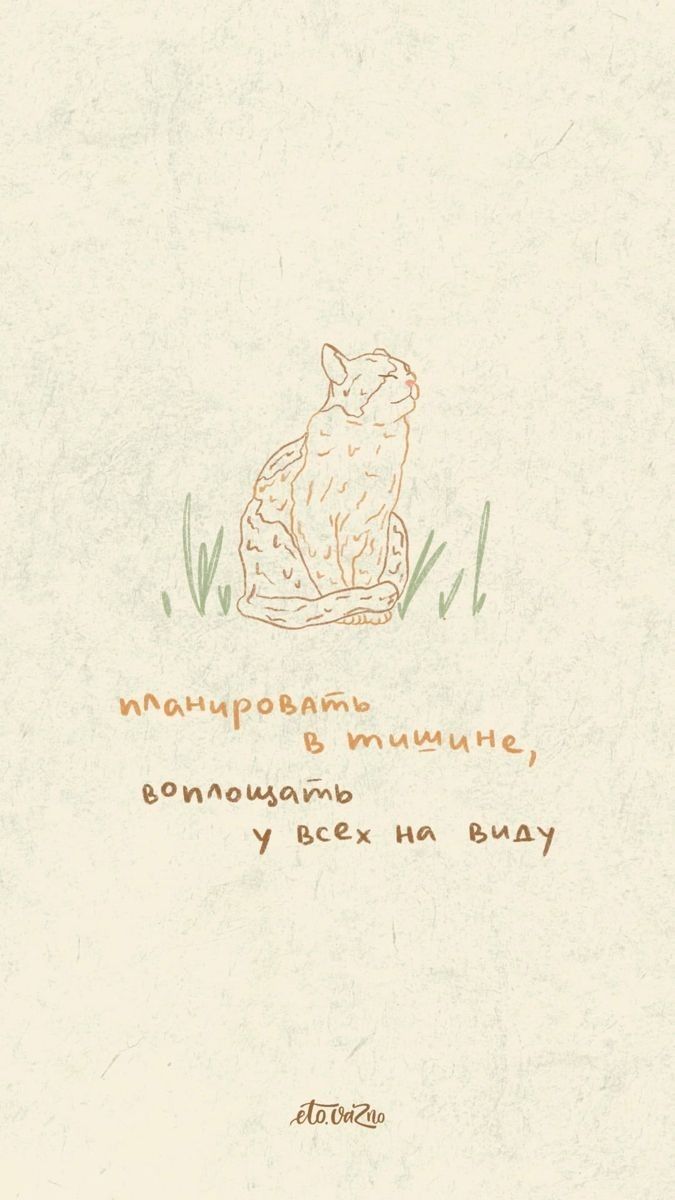 планировать
в тишине,
воплощать
у всех на виду
eto.vaZno